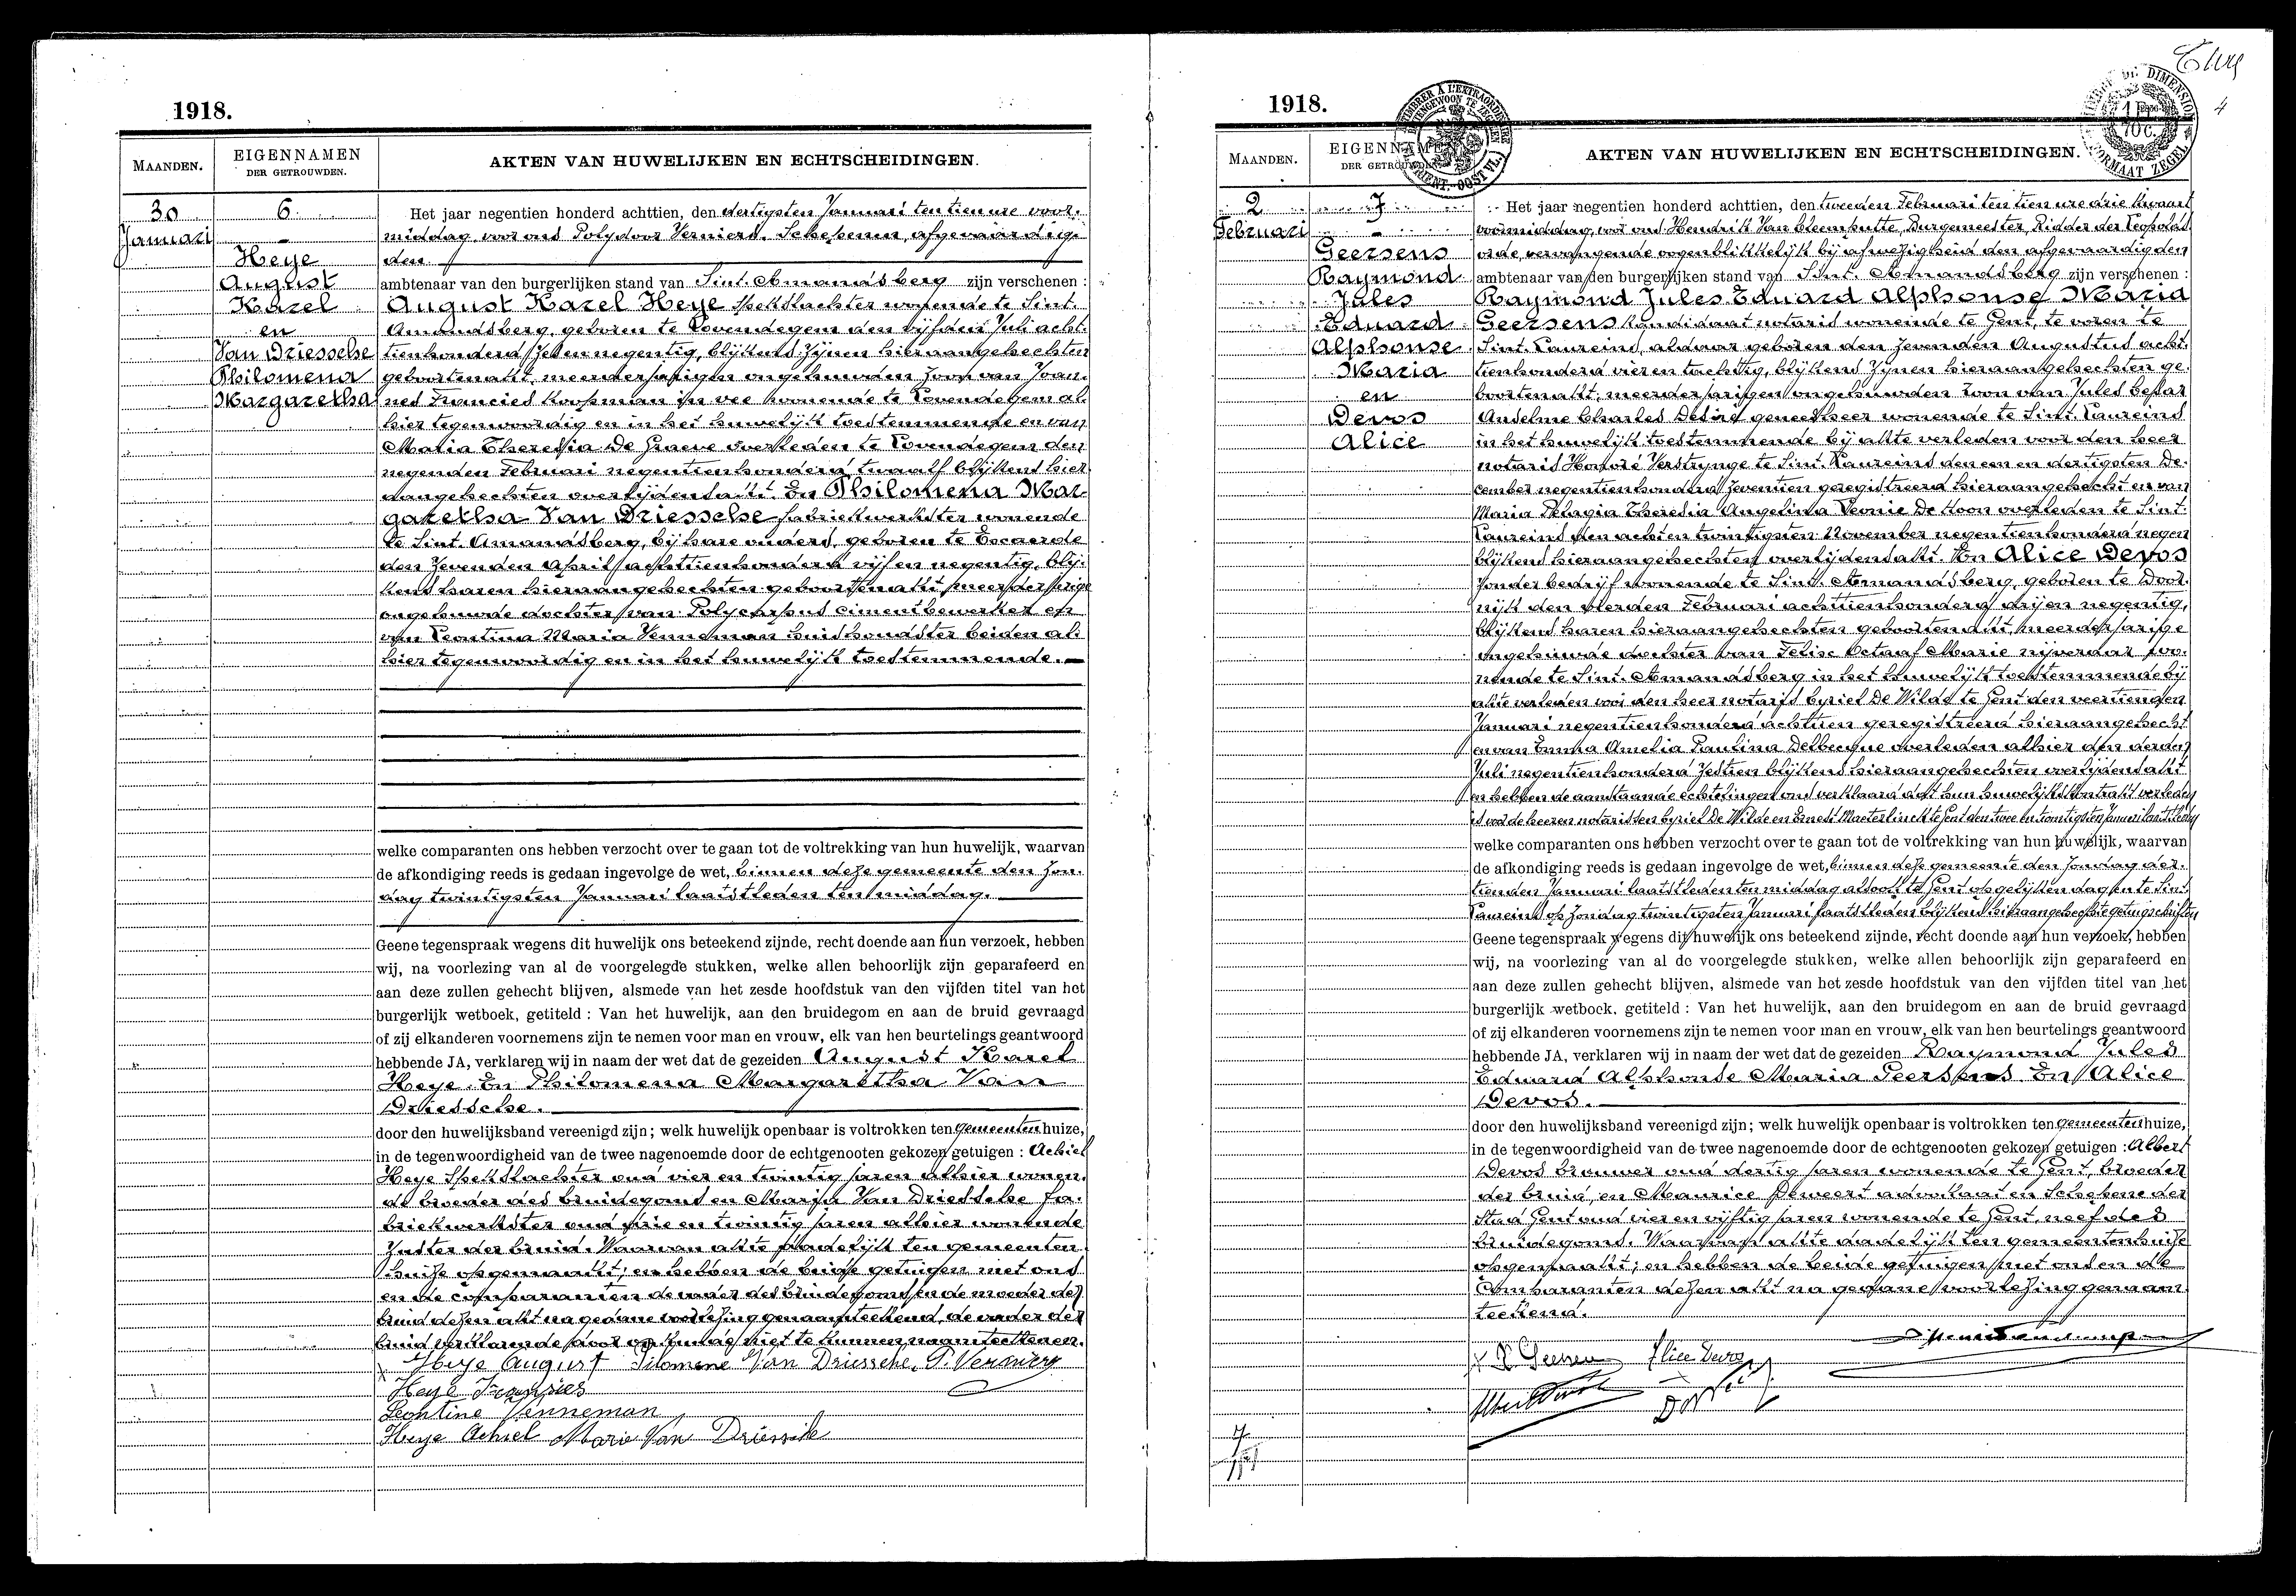 1918.
MAANDEN.
EIGENNAMEN
DER GETROUWDEN.
AKTEN VAN HUWELIJKEN EN ECHTSCHEIDINGEN.
30
Januari
6.
Heye
August
Karel
en
Van Driessche
Philomena
Margaretha
Het jaar negentien honderd achttien, den dertigsten Januari ten tien ure voor-
middag voor ons Polydoor Verniers, Schepenen, afgevaardig-
den
ambtenaar van den burgerlijken stand van Sint-Amandsberg zijn verschenen :
August Karel Heye spekslachter wonende te Sint-
Amandsberg, geboren te Lovendegem den vijfden Juli acht-
tienhonderd zeven negentig, blijkens zijnen hieraangehechten
geboortenakt, meerderjarigen ongehuwden zoon van Joan-
nes Francies koopman in vee wonende te Lovendegem al-
hier tegenwoordig en in het huwelijk toestemmende en van
Maria Theresia De Graeve overleden te Lovendegem den
negenden Februari negentienhonderd twaalf blijkens hier
aangehechten overlijdensakt. En Philomena Mar-
garetha Van Driessche fabriekwerkster wonende
te Sint-Amandsberg, bij hare ouders, geboren te Evergem
den zevenden April achttienhonderd vijf en negentig, blij-
kens haren hieraangehechten geboortenakt, meerderjarige
ongehuwde dochter van Polycarpus cimentbewerker en
van Leontina Maria Venneman huishoudster beiden al-
hier tegenwoordig en in het huwelijk toestemmende.
welke comparanten ons hebben verzocht over te gaan tot de voltrekking van hun huwelijk, waarvan
de afkondiging reeds is gedaan ingevolge de wet, binnen deze gemeente den zon-
dag twintigsten Januari laatstleden ten middag.
Geene tegenspraak wegens dit huwelijk ons beteekend zijnde, recht doende aan hun verzoek, hebben
wij, na voorlezing van al de voorgelegde stukken, welke allen behoorlijk zijn geparafeerd en
aan deze zullen gehecht blijven, alsmede van het zesde hoofdstuk van den vijfden titel van het
burgerlijk wetboek, getiteld : Van het huwelijk, aan den bruidegom en aan de bruid gevraagd
of zij elkanderen voornemens zijn te nemen voor man en vrouw, elk van hen beurtelings geantwoord
hebbende JA, verklaren wij in naam der wet dat de gezeiden August Karel
Heye. En Philomena Margaretha Van
Driessche.
door den huwelijksband vereenigd zijn; welk huwelijk openbaar is voltrokken ten gemeentenhuize,
in de tegenwoordigheid van de twee nagenoemde door de echtgenooten gekozen getuigen : Achiel
Heye Spekslachter oud vier en twintig jaren alhier wonen-
de broeder des bruidegoms en Maria Van Driessche fa-
briekwerkster oud drie en twintig jaren alhier wonende
zuster der bruid. Waarvan akte dadelijk ten gemeenten-
huize opgemaakt; en hebben de beide getuigen met ons
en de comparanten de vader des bruidegoms en de moeder der
bruid dezen akt na gedane voorlezing genaamteekend, de vader der
bruid verklarende door onkunde niet te kunnen naamteekenen.
Heye August Filomene Van Driessche. P. Verniers
Heye Francies
Leontine Venneman
Heye Achiel Marie Van Driessche
1918.
4
MAANDEN.
EIGENNAMEN
DER GETROUWDEN.
AKTEN VAN HUWELIJKEN EN ECHTSCHEIDINGEN.
2
Februari
7
Geersens
Raymond
Jules
Eduard
Alphonse
Maria
en
Devos
Alice
Het jaar negentien honderd achttien, den tweeden Februari ten tien ure drie kwaart
voormiddag, voor ons Hendrik Van Cleemputte, Burgemeester, Ridder der Leopolds-
orde, vervangende oogenblikkelijk bij afwezigheid den afgevaardigden
ambtenaar van den burgerlijken stand van Sint-Amandsberg zijn verschenen :
Raymond Jules Eduard Alphonse Maria
Geersens kandidaat notaris wonende te Gent, te voren te
Sint-Laureins, aldaar geboren den zevenden Augustus acht-
tienhonderd vier en tachtig, blijkens zijnen hieraangehechten ge-
boortenakt, meerderjarigen ongehuwden zoon van Jules Cesar
Anselme Charles Desiré geneesheer wonende te Sint-Laureins
in het huwelijk toestemmende bij akte verleden voor den heer
notaris Honoré Verstrynge te Sint-Laureins den een en dertigsten De-
cember negentienhonderd zeventien geregistreerd hieraangehecht en van
Maria Pelagia Theresia Angelina Leonie De Koon overleden te Sint-
Laureins den acht en twintigsten November negentienhonderd negen
blijkens hieraangehechten overlijdensakt. En Alice Devos
zonder bedrijf wonende te Sint-Amandsberg, geboren te Door-
nijk den vierden Februari achttienhonderd drij en negentig,
blijkens haren hieraangehechten geboortenakt, meerderjarige
ongehuwde dochter van Felix Octaaf Marie nijveraar wo-
nende te Sint-Amandsberg in het huwelijk toestemmende bij
akte verleden voor den heer notaris Cyriel De Wilde te Gent den veertienden
Januari negentienhonderd achttien geregistreerd hieraangehecht
en van Emma Amelia Paulina Delbecque overleden alhier den derden
Juli negentienhonderd zestien blijkens hieraangehechten overlijdensakt
en hebben de aanstaande echtelingen ons verklaard dat hun huwelijkskontrakt verleden
is voor de heeren notarissen Cyriel De Wilde en Ernest Maeterlinck te Gent den twee en twintigsten Januari laatstleden
welke comparanten ons hebben verzocht over te gaan tot de voltrekking van hun huwelijk, waarvan
de afkondiging reeds is gedaan ingevolge de wet, binnen deze gemeente den zondag der-
tienden Januari laatstleden ten middag alsook te Gent op gelijken dag en te Sint-
Laureins op zondag twintigsten Januari laatstleden blijkens hieraangehechte getuigschriften
Geene tegenspraak wegens dit huwelijk ons beteekend zijnde, recht doende aan hun verzoek, hebben
wij, na voorlezing van al de voorgelegde stukken, welke allen behoorlijk zijn geparafeerd en
aan deze zullen gehecht blijven, alsmede van het zesde hoofdstuk van den vijfden titel van het
burgerlijk wetboek, getiteld : Van het huwelijk, aan den bruidegom en aan de bruid gevraagd
of zij elkanderen voornemens zijn te nemen voor man en vrouw, elk van hen beurtelings geantwoord
hebbende JA, verklaren wij in naam der wet dat de gezeiden Raymond Jules
Eduard Alphonse Maria Geersens En Alice
Devos.
door den huwelijksband vereenigd zijn; welk huwelijk openbaar is voltrokken ten gemeentenhuize,
in de tegenwoordigheid van de twee nagenoemde door de echtgenooten gekozen getuigen : Albert
Devos brouwer oud dertig jaren wonende te Gent, broeder
der bruid, en Maurice Deweert advokaat en Schepene der
Stad Gent oud vier en vijftig jaren wonende te Gent, neef des
bruidegoms. Waarvan akte dadelijk ten gemeentenhuize
opgemaakt; en hebben de beide getuigen met ons en de
Comparanten dezen akt na gedane voorlezing genaam-
teekend.
Alice Devos